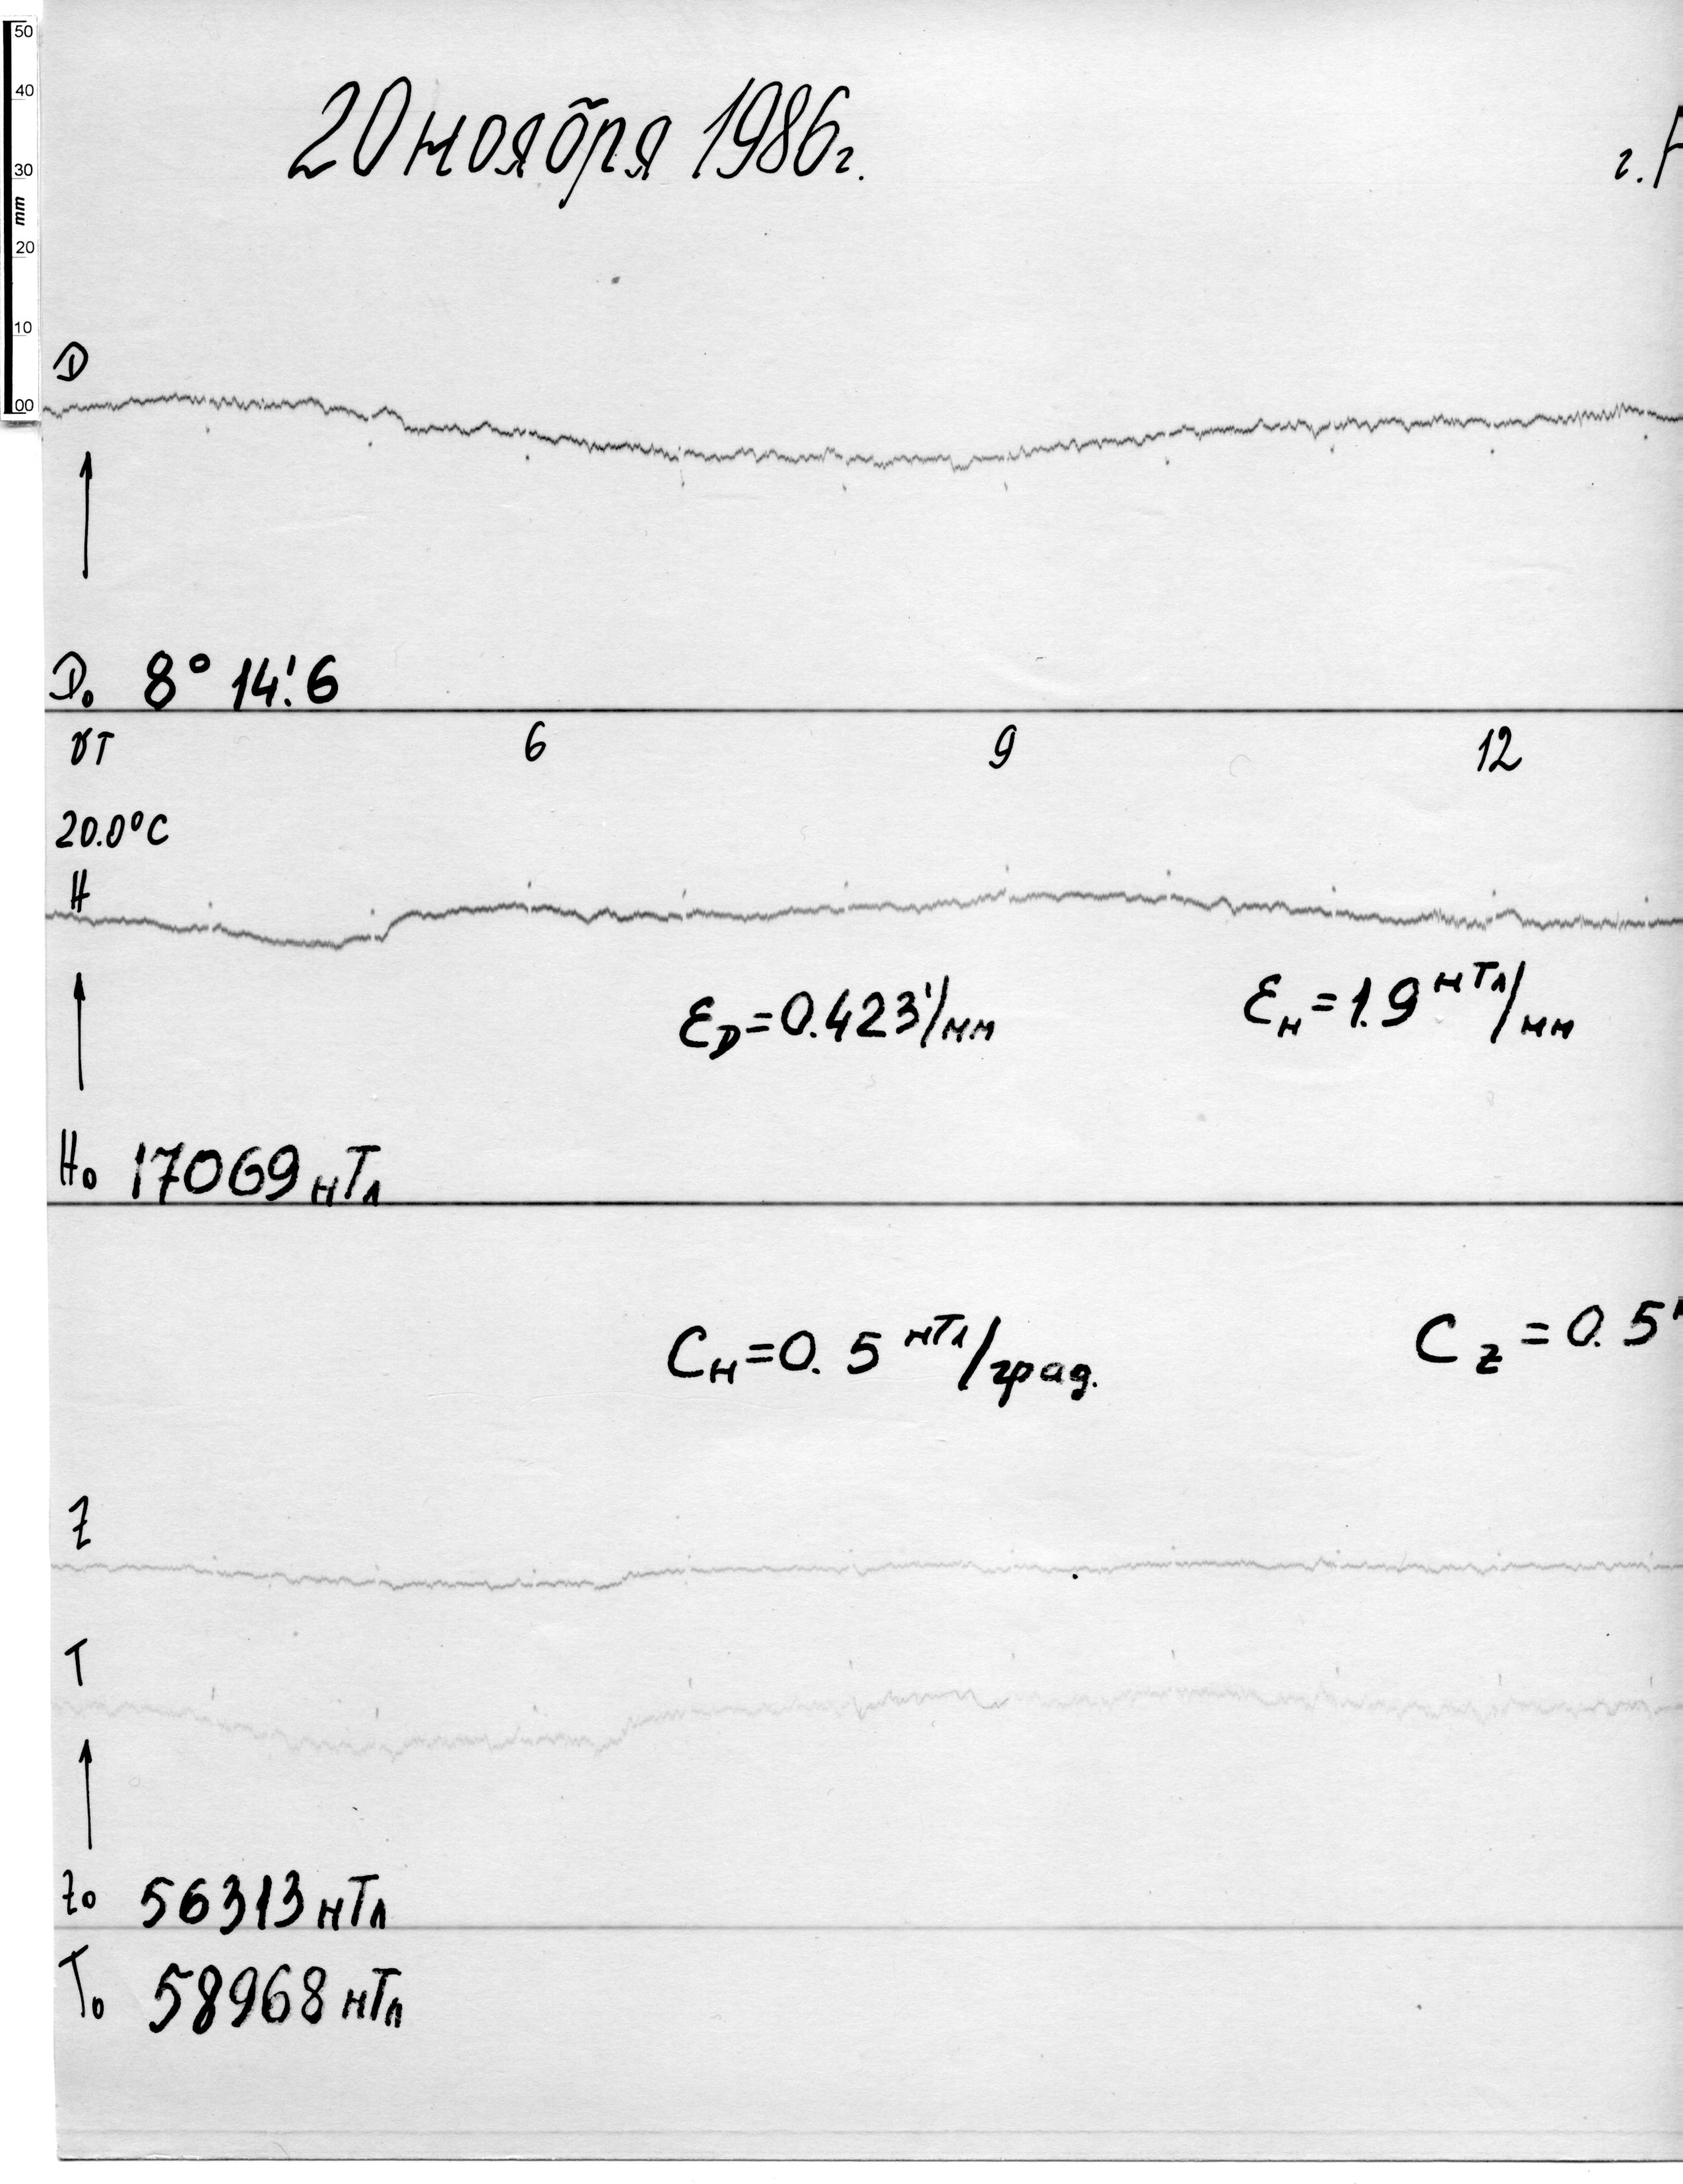 50
40
30
mm
20
10
00
20 ноября 1986г.
г.
D
D₀ 8° 14!6
UT 6 9 12
20.0°C
H
ε_D=0.423'/мм ε_н=1.9 нТл/мм
H₀ 17069 нТл
C_н=0.5 нТл/град. C_z=0.5
Z
T
Z₀ 56313 нТл
T₀ 58968 нТл